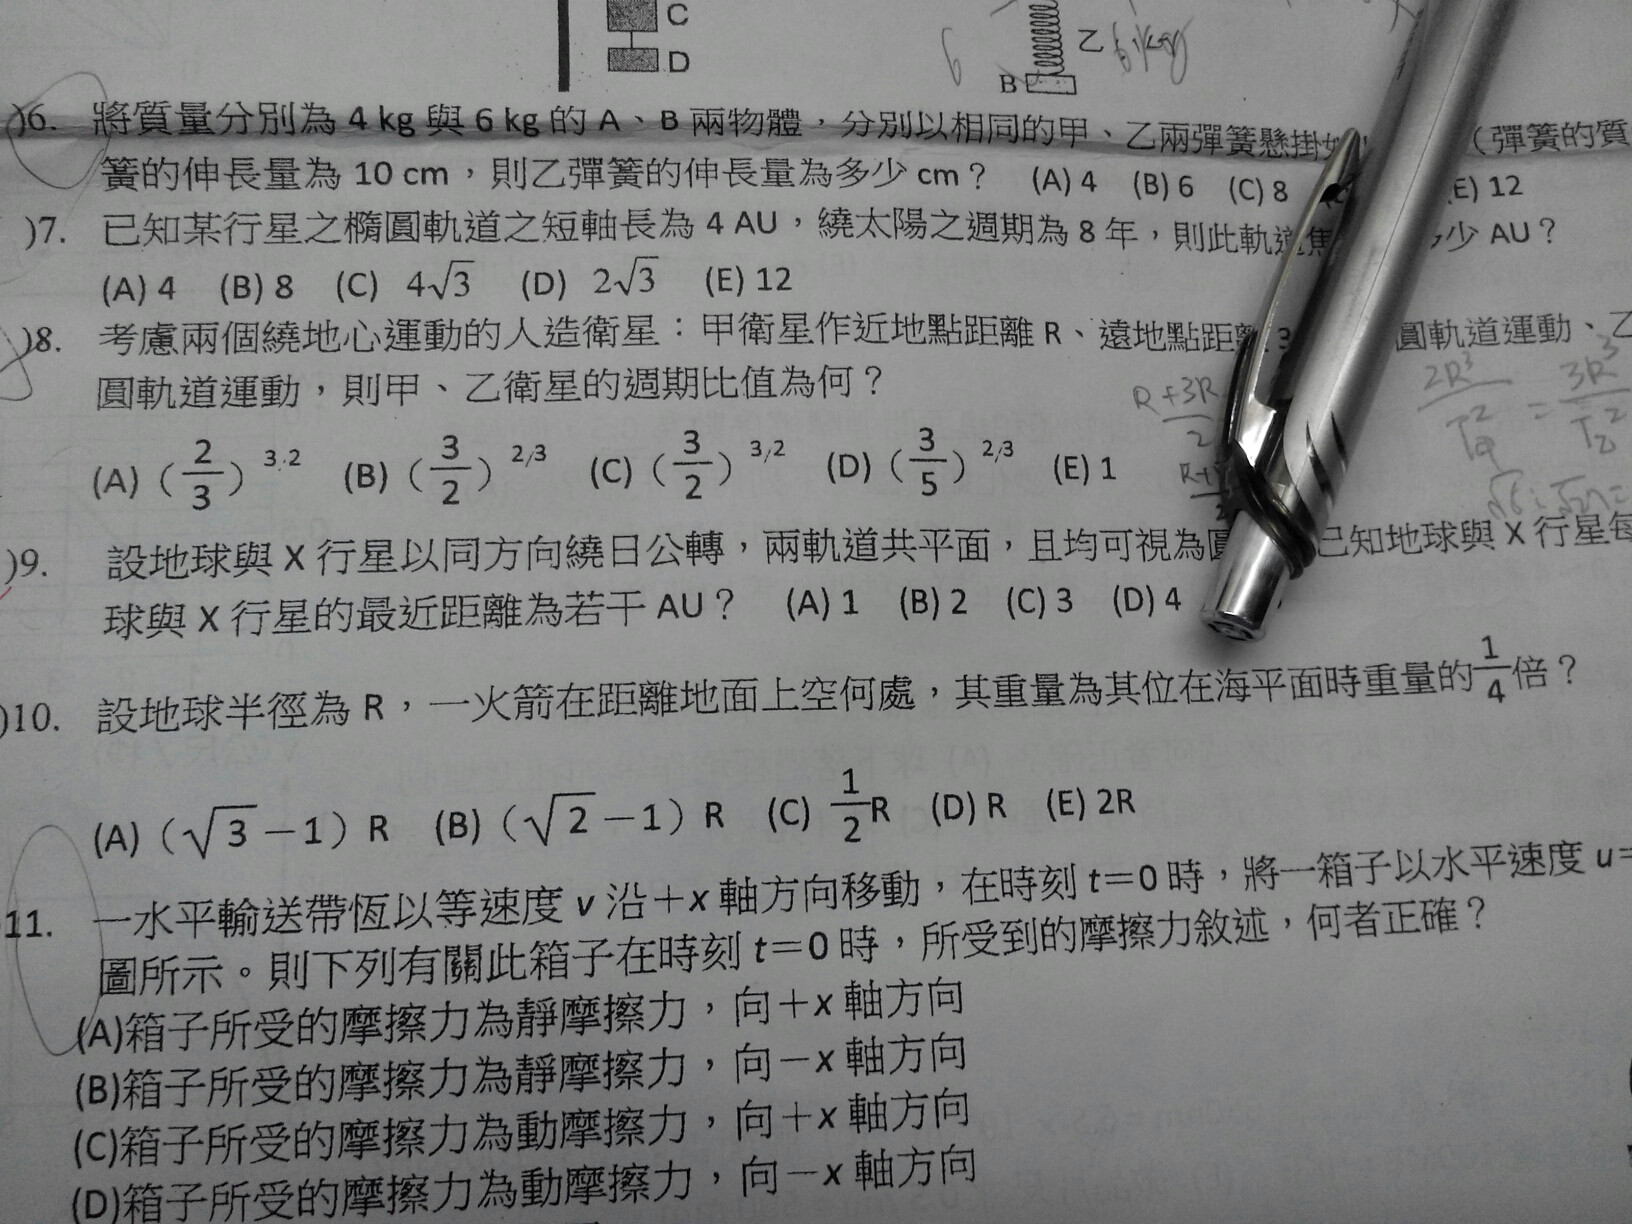 C
D
乙
B
)6. 將質量分別為 4 kg 與 6 kg 的 A、B 兩物體，分別以相同的甲、乙兩彈簧懸掛 （彈簧的質
簧的伸長量為 10 cm，則乙彈簧的伸長量為多少 cm？ (A) 4 (B) 6 (C) 8 (E) 12
)7. 已知某行星之橢圓軌道之短軸長為 4 AU，繞太陽之週期為 8 年，則此軌道焦 少 AU？
(A) 4 (B) 8 (C) 4√3 (D) 2√3 (E) 12
)8. 考慮兩個繞地心運動的人造衛星：甲衛星作近地點距離 R、遠地點距離 3 圓軌道運動、乙
圓軌道運動，則甲、乙衛星的週期比值為何？
R+3R/2
2R³/T甲² = 3R³/T乙²
(A)（2/3）^3/2 (B)（3/2）^2/3 (C)（3/2）^3/2 (D)（3/5）^2/3 (E) 1
)9. 設地球與 X 行星以同方向繞日公轉，兩軌道共平面，且均可視為圓 已知地球與 X 行星每
球與 X 行星的最近距離為若干 AU？ (A) 1 (B) 2 (C) 3 (D) 4
)10. 設地球半徑為 R，一火箭在距離地面上空何處，其重量為其位在海平面時重量的1/4倍？
(A)（√3－1）R (B)（√2－1）R (C) 1/2R (D) R (E) 2R
11. 一水平輸送帶恆以等速度 v 沿＋x 軸方向移動，在時刻 t＝0 時，將一箱子以水平速度 u＝
圖所示。則下列有關此箱子在時刻 t＝0 時，所受到的摩擦力敘述，何者正確？
(A)箱子所受的摩擦力為靜摩擦力，向＋x 軸方向
(B)箱子所受的摩擦力為靜摩擦力，向－x 軸方向
(C)箱子所受的摩擦力為動摩擦力，向＋x 軸方向
(D)箱子所受的摩擦力為動摩擦力，向－x 軸方向